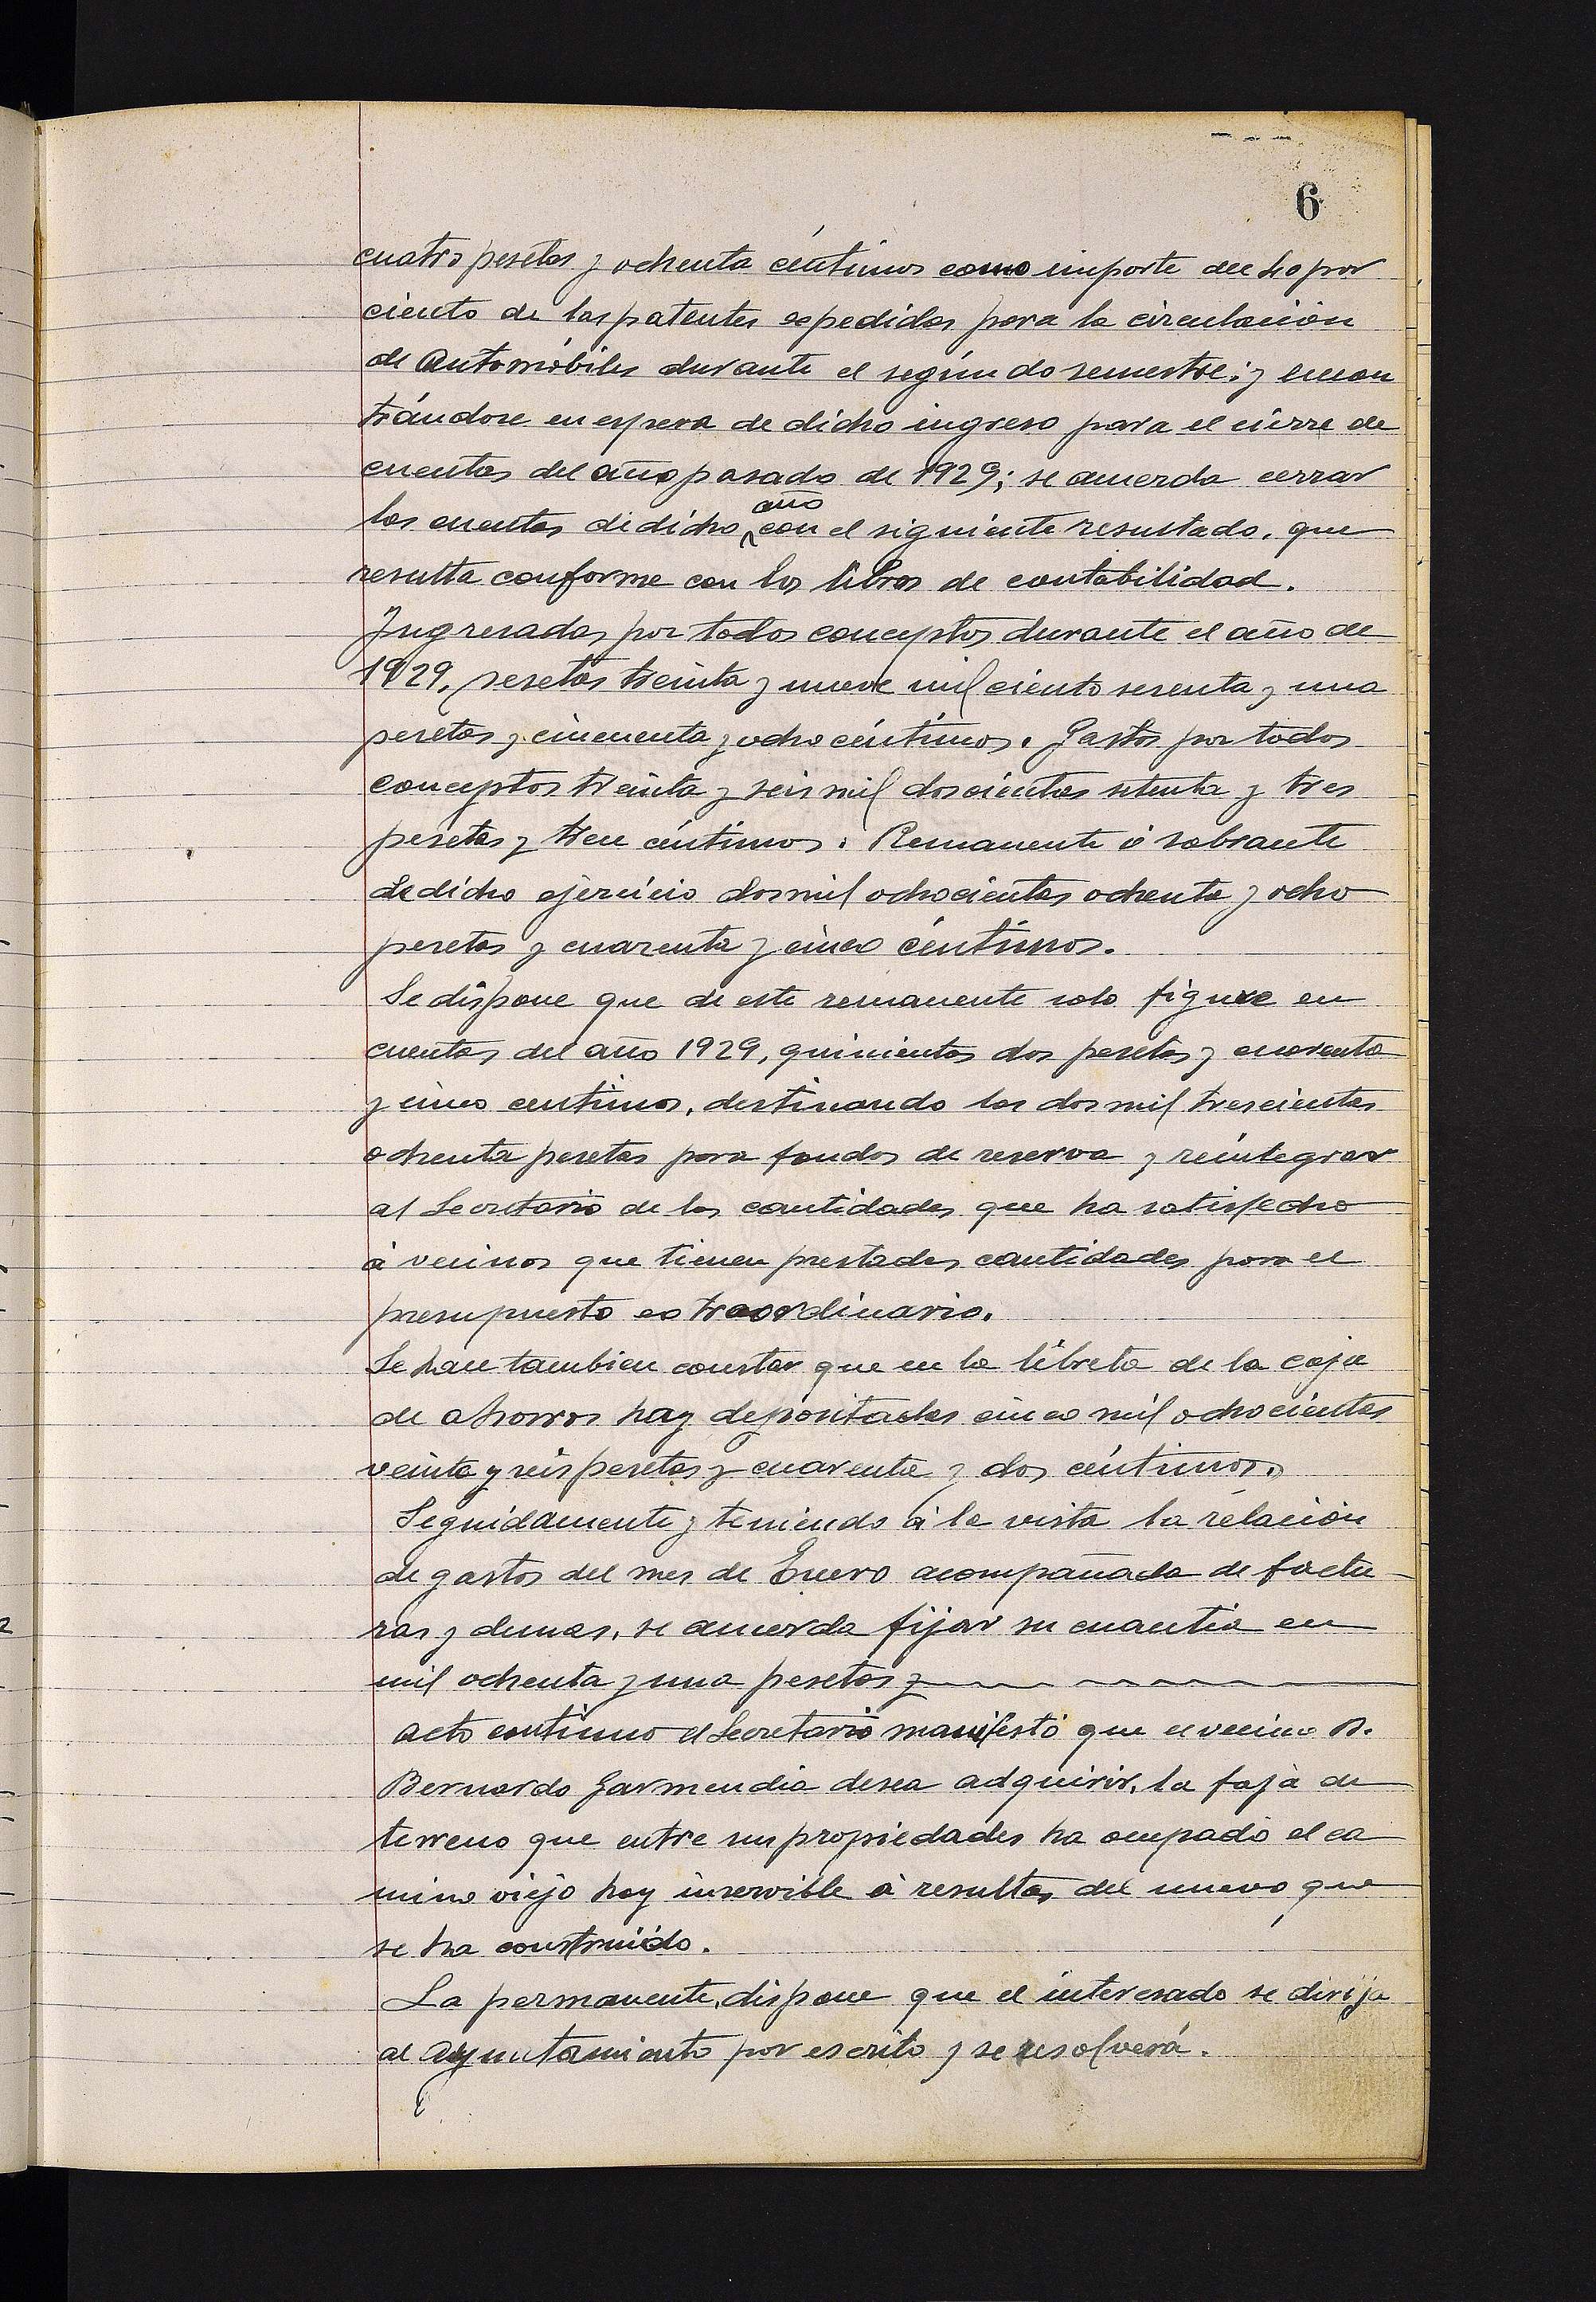 6
cuatro pesetas y ochenta céntimos como importe del por
ciento de las patentes expedidas para la circulación
de Automóbiles durante el segúndo semestre; y encon
trándose en espera de dicho ingreso para el cierre de
cuentas del año pasado de 1929; se acuerda cerrar
año
las cuentas de dicho con el siguiente resultado, que
resulta conforme con los libros de contabilidad.
Ingresadas por todos conceptos durante el año de
1929, pesetas treinta y nueve mil ciento sesenta y una
pesetas y cincuenta y ocho céntimos. Gastos por todos
conceptos treinta y seis mil doscientas setenta y tres
pesetas y trece céntimos. Remanente ó sobrante
de dicho ejercicio dos mil ochocientas ochenta y ocho
pesetas y cuarenta y cinco céntimos.
Se dispone que de este remanente solo figure en
cuentas del año 1929, quinientas dos pesetas y cuarenta
y cinco centimos, destinando las dos mil trescientas
ochenta pesetas para fondos de reserva y reintegrar
al Secretario de las cantidades que ha satisfecho
á vecinos que tienen prestadas cantidades para el
presupuesto extraordinario.
Se hace tambien constar que en la libreta de la caja
de ahorros hay depositadas cinco mil ochocientas
veinte y seis pesetas y cuarenta y dos céntimos.
Seguidamente y teniendo á la vista la relación
de gastos del mes de Enero acompañada de factu
ras y demas, se acuerda fijar su cuantia en
mil ochenta y una pesetas y
Acto continuo el Secretario manifestó que el vecino D.
Bernardo Garmendia desea adquirir, la faja de
terreno que entre sus propiedades ha ocupado el ca
mino viejo hoy inservible á resultas del nuevo que
se ha construído.
La permanente, dispone que el interesado se dirija
al Ayuntamiento por escrito y se resolverá.